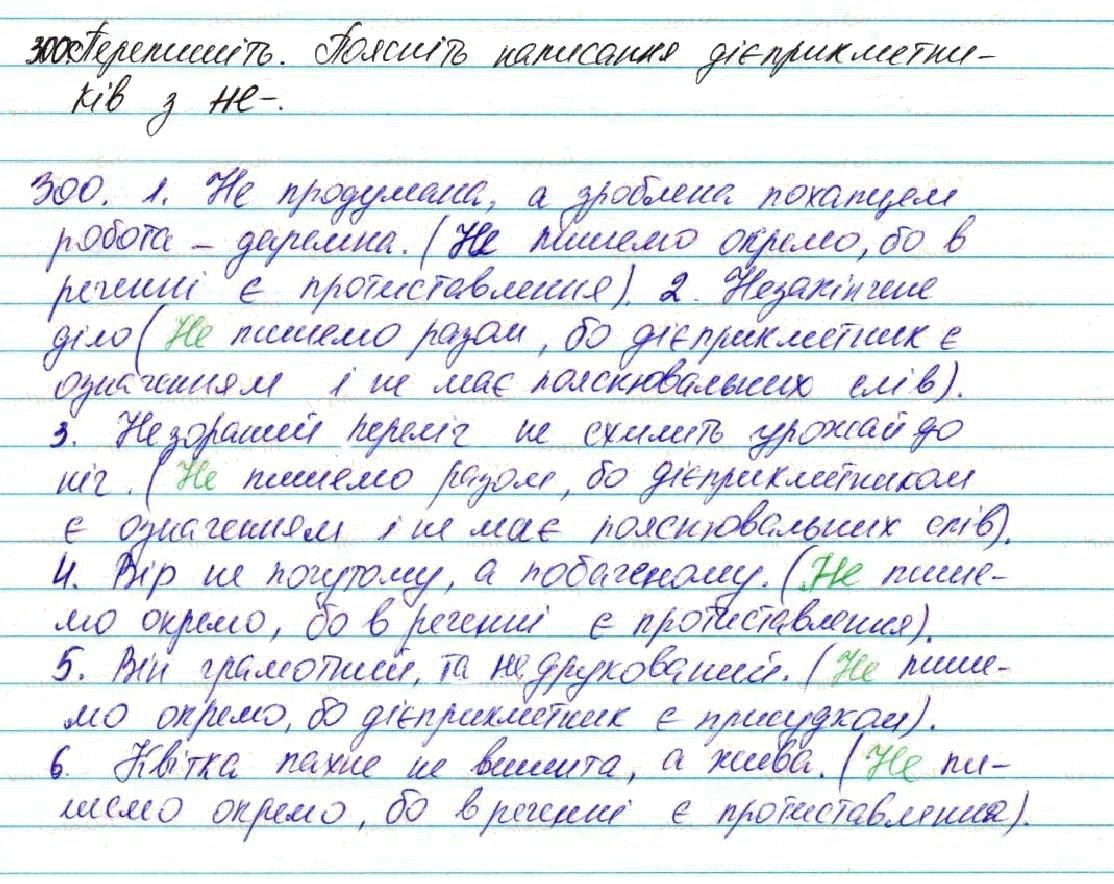 300. Перепишіть. Поясніть написання дієприкметни-
ків з не-.
300. 1. Не продумана, а зроблена похапцем
робота – даремна. (Не пишемо окремо, бо в
реченні є протиставлення). 2. Незакінчене
діло (Не пишемо разом, бо дієприкметник є
означенням і не має пояснювальних слів).
3. Незораний переліг не схилить урожай до
ніг. (Не пишемо разом, бо дієприкметником
є означенням і не має пояснювальних слів).
4. Вір не почутому, а побаченому. (Не пише-
мо окремо, бо в реченні є протиставлення).
5. Він грамотний, та не друкований. (Не пише-
мо окремо, бо дієприкметник є присудком).
6. Квітка пахне не вишита, а жива. (Не пи-
шемо окремо, бо в реченні є протиставлення).